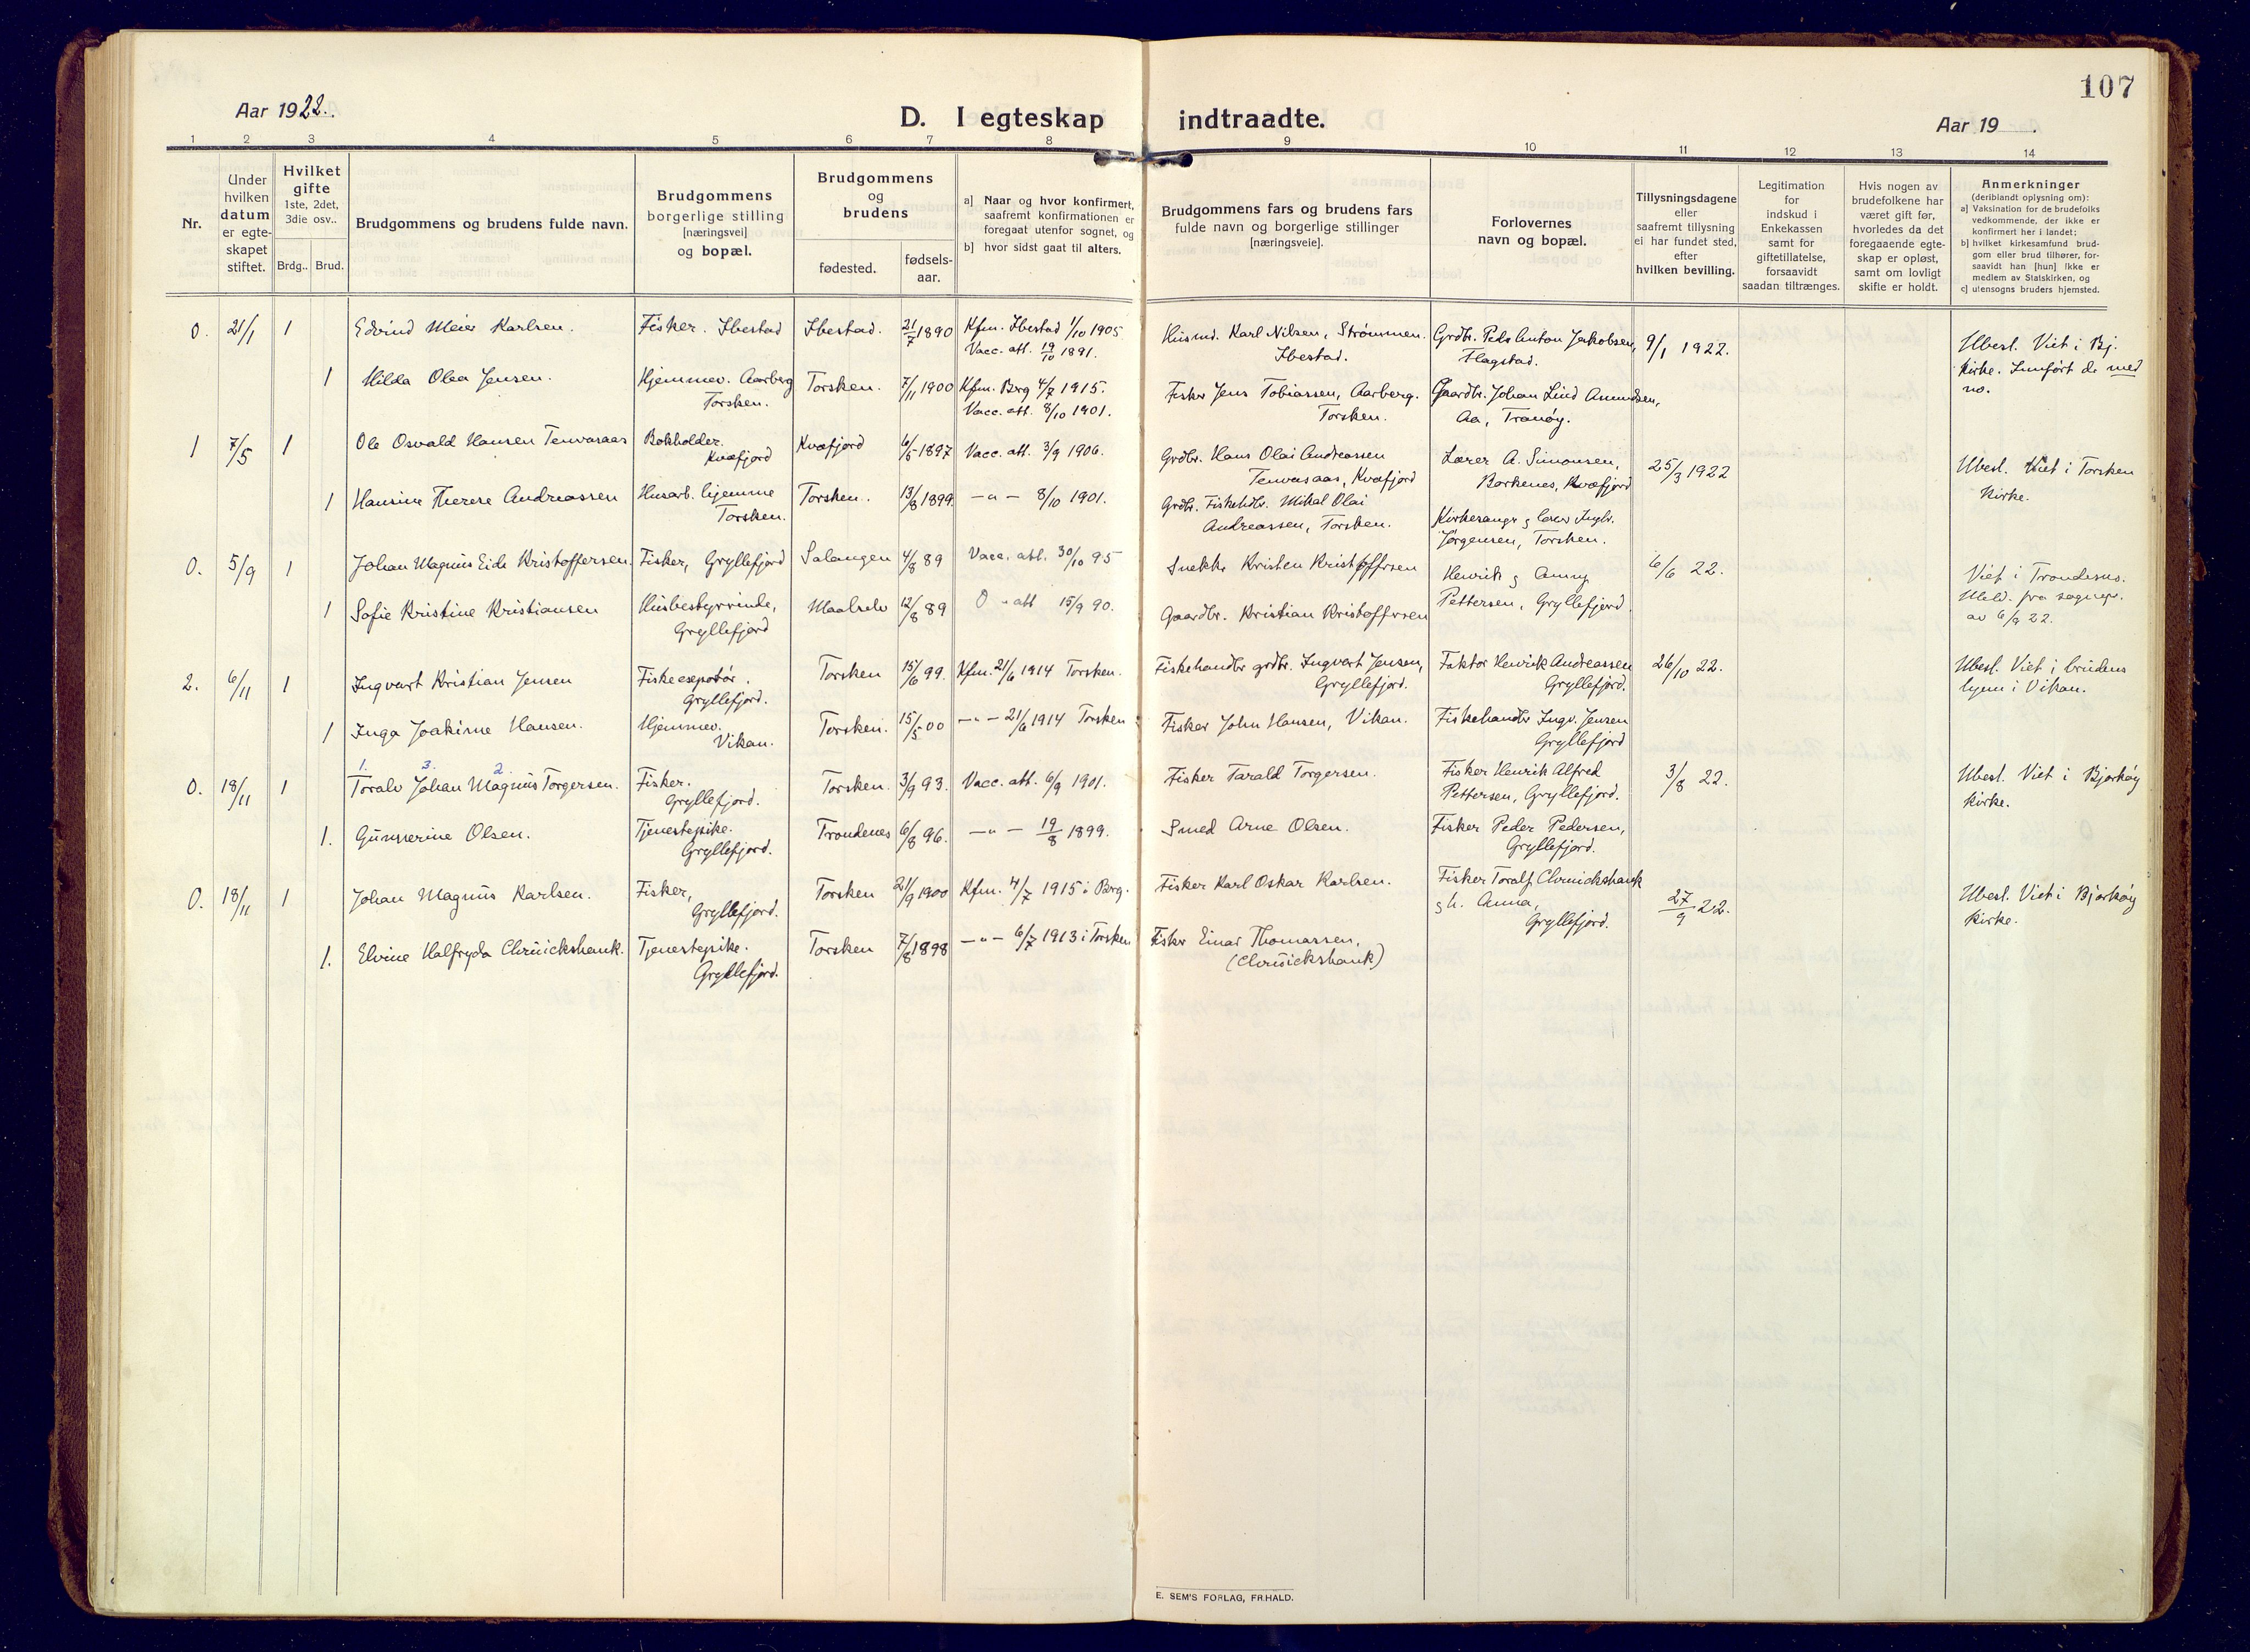 107
Aar 1922.
D. I egteskap indtraadte.
Aar 19 .
1 2 3 4 5 6 7 8 9 10 11 12 13 14
Nr.
Under
hvilken
datum
er egte-
skapet
stiftet.
Hvilket
gifte
1ste, 2det,
3die osv..
Brdg.. Brud.
Brudgommens og brudens fulde navn.
Brudgommens
borgerlige stilling
[næringsvei]
og bopæl.
Brudgommens
og
brudens
fødested.
fødsels-
aar.
a] Naar og hvor konfirmert,
saafremt konfirmationen er
foregaat utenfor sognet, og
b] hvor sidst gaat til alters.
Brudgommens fars og brudens fars
fulde navn og borgerlige stillinger
[næringsveie].
Forlovernes
navn og bopæl.
Tillysningsdagene
eller
saafremt tillysning
ei har fundet sted,
efter
hvilken bevilling.
Legitimation
for
indskud i
Enkekassen
samt for
giftetillatelse,
forsaavidt
saadan tiltrænges.
Hvis nogen av
brudefolkene har
været gift før,
hvorledes da det
foregaaende egte-
skap er opløst,
samt om lovligt
skifte er holdt.
Anmerkninger
(deriblandt oplysning om):
a] Vaksination for de brudefolks
vedkommende, der ikke er
konfirmert her i landet;
b] hvilket kirkesamfund brud-
gom eller brud tilhører, for-
saavidt han [hun] ikke er
medlem av Statskirken, og
c] utensogns bruders hjemsted.
0. 21/1 1 Edvind Meier Karlsen. Fisker. Ibestad Ibestad. 21/7 1890 Kfm. Ibestad 1/10 1905
Vacc. att. 19/10 1891.
Husmd. Karl Nilsen, Strømmen.
Ibestad.
Grdbr. Peder Anton Jakobsen,
Flagstad.
9/1 1922.
Ubesl. Viet i Bj.
Kirke. Innført de med
no.
1 Hilda Olea Jensen. Hjemmev. Aarberg
Torsken.
Torsken. 7/11 1900 Kfm. Berg 4/7 1915.
Vacc. att. 8/10 1901.
Fisker Jens Tobiassen, Aarberg.
Torsken.
Gaardbr. Johan Lind Amundsen,
Aa, Tranøy.
1 7/5 1 Ole Osvald Hansen Tenvasaas Bokholder.
Kvæfjord
Kvæfjord 6/5 1897 Vacc. att. 3/9 1906.
Grdbr. Hans Olai Andreassen
Tenvasaas, Kvæfjord
Lærer A. Simonsen,
Borkenes, Kvæfjord
25/3 1922
Ubesl. Viet i Torsken
Kirke.
1 Hansine Therese Andreassen Husarb. hjemme
Torsken.
Torsken. 13/8 1899. — " — 8/10 1901.
Grdbr. Fiskehdbr. Mikal Olai
Andreassen, Torsken.
Kirkesangr og lærer Ingbr.
Jørgensen, Torsken.
0. 5/9 1 Johan Magnus Eide Kristoffersen. Fisker, Gryllefjord Salangen 4/8 89 Vacc. att. 30/10 95
Snekker Kristen Kristoffersen
Henrik og Anny
Pettersen, Gryllefjord.
6/6 22.
Viet i Trondenes.
Meld. fra sognepr.
av 6/9 22.
1 Sofie Kristine Kristiansen Husbestyrinde,
Gryllefjord
Maalselv 12/8 89 0 " att 15/9 90.
Gaardbr. Kristian Kristoffersen
2. 6/11 1 Ingvart Kristian Jensen Fiskeexportør.
Gryllefjord.
Torsken 15/6 99. Kfm. 21/6 1914 Torsken.
Fiskehandler grdbr. Ingvart Jensen,
Gryllefjord.
Faktor Henrik Andreassen
Gryllefjord.
26/10 22.
Ubesl. Viet i brudens
hjem i Vikan.
1 Inga Joakime Hansen. Hjemmev.
Vikan.
Torsken. 15/5 00 — " — 21/6 1914 Torsken
Fisker John Hansen, Vikan.
Fiskehandler Ingv. Jensen
Gryllefjord
1. 3. 2.
0. 18/11 1 Toralv Johan Magnus Torgersen. Fisker.
Gryllefjord.
Torsken. 3/9 93. Vacc. att. 6/9 1901.
Fisker Tarald Torgersen.
Fisker Henrik Alfred
Pettersen, Gryllefjord.
3/8 22.
Ubesl. Viet i Bjarkøy
kirke.
1. Gunnerine Olsen. Tjenestepike.
Gryllefjord.
Trondenes 6/8 96. — " — 19/8 1899.
Smed Arne Olsen.
Fisker Peder Pedersen,
Gryllefjord.
0. 18/11 1 Johan Magnus Karlsen. Fisker,
Gryllefjord.
Torsken 21/9 1900 Kfm. 4/7 1915 i Berg.
Fisker Karl Oskar Karlsen.
Fisker Toralf Chruickshank
og h. Anna,
Gryllefjord.
27/9 22.
Ubesl. Viet i Bjarkøy
Kirke.
1. Elvine Halfryda Chruickshank. Tjenestepike.
Gryllefjord.
Torsken 7/8 1898 — " — 6/7 1913 i Torsken
Fisker Einar Thomassen,
(Chruickshank)
E. SEM'S FORLAG, FR.HALD.